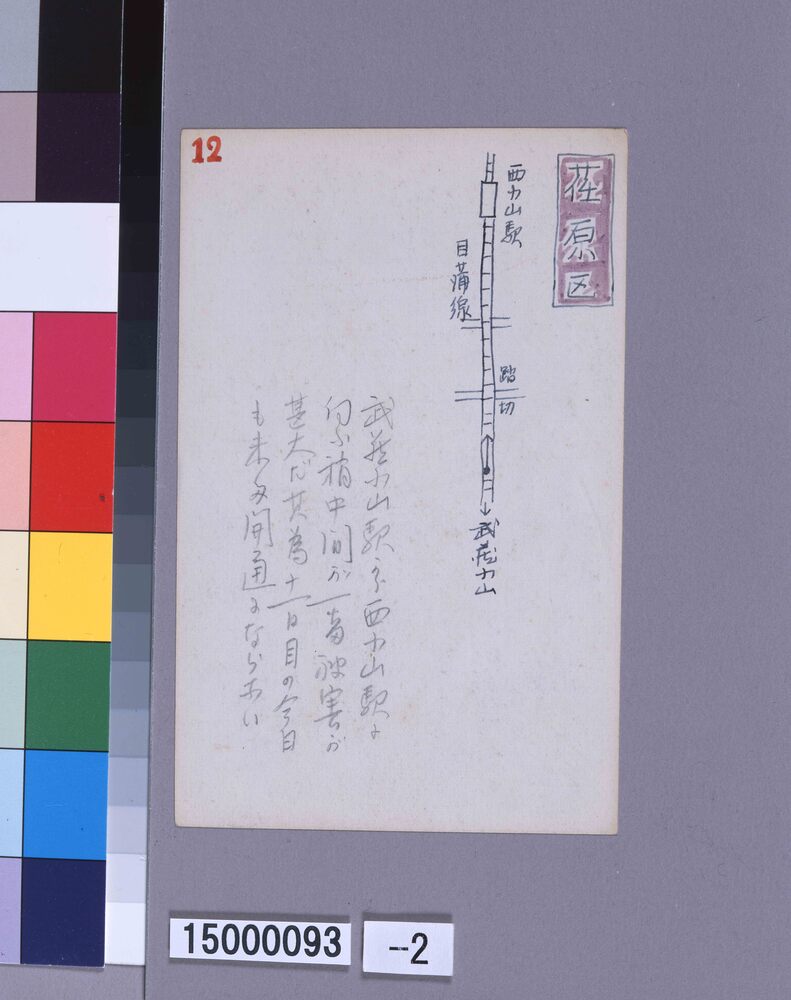 12
荏原区
西小山駅
目蒲線
踏切
武蔵小山
武蔵小山駅から西小山駅に
向ふ稍中間が一番被害が
甚大だ其為十一日目の今日
も未だ開通にならない
15000093
-2